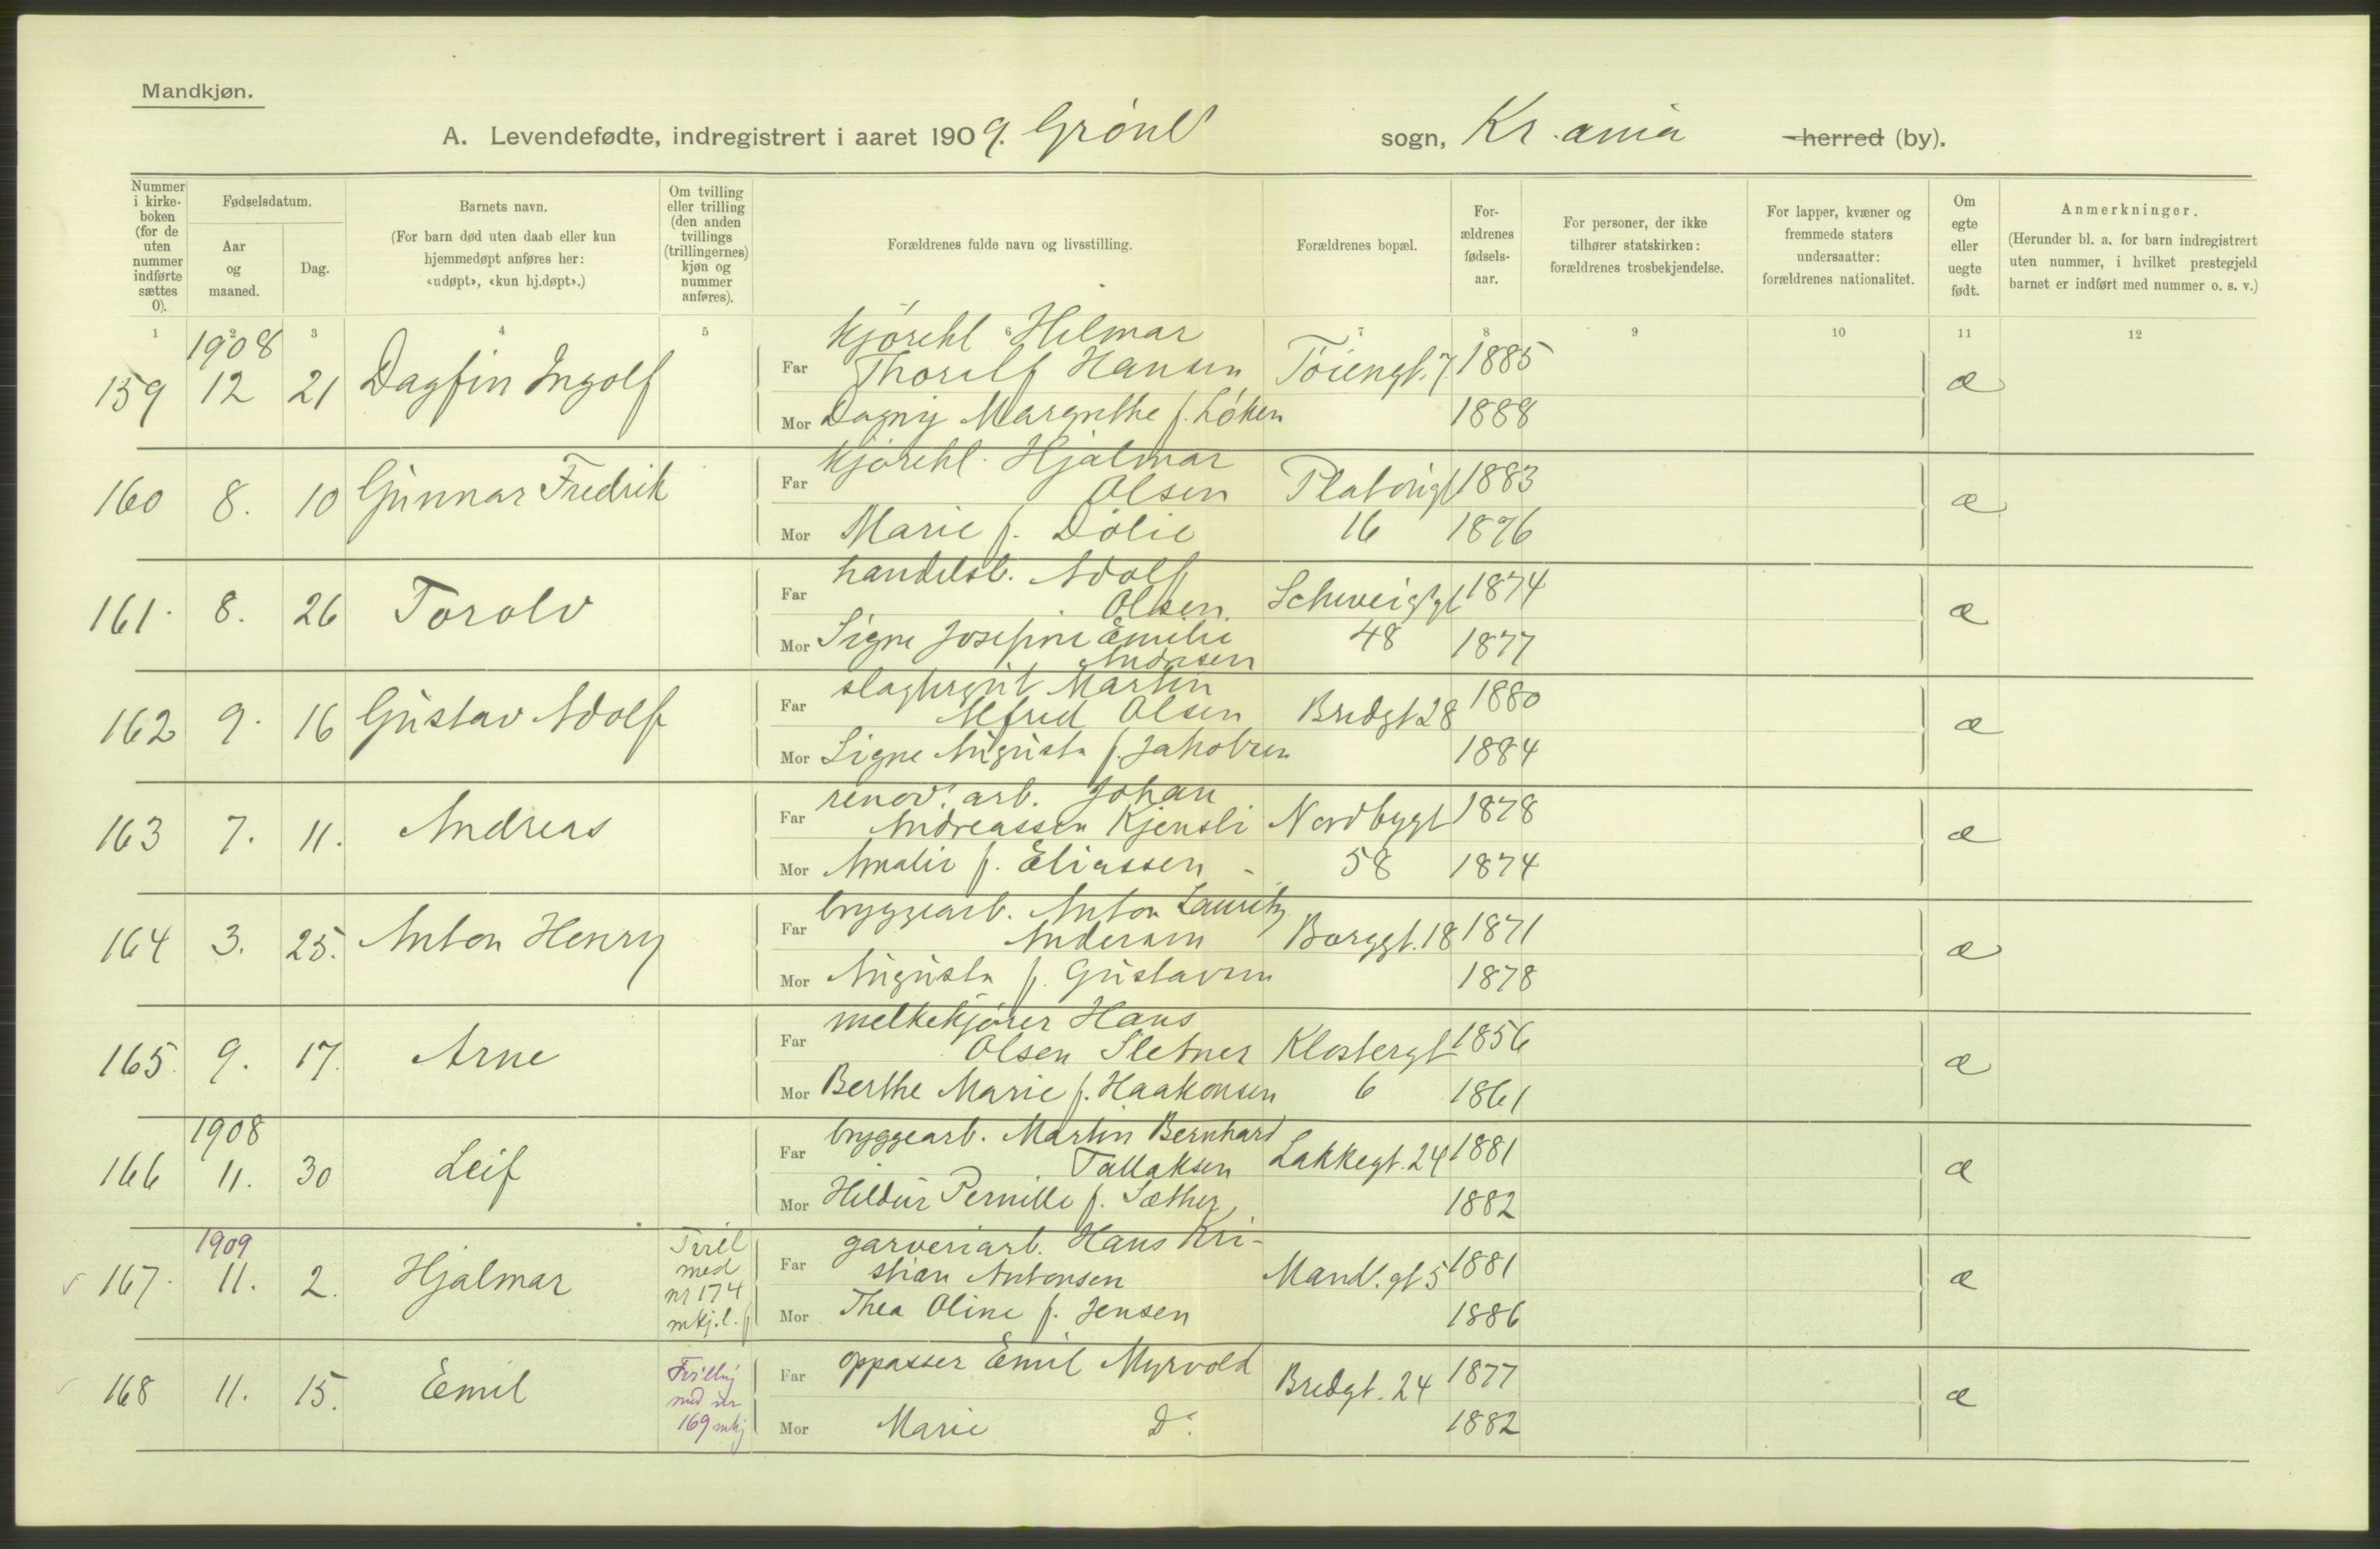 Mandkjøn.
A. Levendefødte, indregistrert i aaret 1909. Grønl sogn, Kr.ania herred (by).
Nummer i kirke-boken (for de uten nummer indførte sættes 0).
Fødselsdatum.
Aar og maaned.
Dag.
Barnets navn.
(For barn død uten daab eller kun hjemmedøpt anføres her: «udøpt», «kun hj.døpt».)
Om tvilling eller trilling (den anden tvillings (trillingernes) kjøn og nummer anføres).
Forældrenes fulde navn og livsstilling.
Forældrenes bopæl.
For-ældrenes fødsels-aar.
For personer, der ikke tilhører statskirken: forældrenes trosbekjendelse.
For lapper, kvæner og fremmede staters undersaatter: forældrenes nationalitet.
Om egte eller uegte født.
Anmerkninger.
(Herunder bl. a. for barn indregistrert uten nummer, i hvilket prestegjeld barnet er indført med nummer o. s. v.)
1 2 3 4 5 6 7 8 9 10 11 12
1908
159 12 21 Dagfin Ingolf
Far kjørekl Hilmar
Thorolf Hansen Tøiengt. 7 1885 æ
Mor Dagny Margrethe f. Løken 1888
160 8. 10 Gunnar Fredrik
Far kjørekl. Hjalmar
Olsen Platousgt 1883 æ
Mor Marie f. Dølie 16 1876
161. 8. 26 Torolv
Far handelsb. Adolf
Olsen Schweigsgt 1874 æ
Mor Signe Josefine Emilie 48 1877
Andresen
162 9. 16 Gustav Adolf
Far Martin
Alfred Olsen Bredgt 28 1880 æ
Mor Signe Augusta f. Jakobsen 1884
163 7. 11. Andreas
Far renov. arb. Johan
Andreassen Kjensli Nordbygt 1878 æ
Mor Amalie f. Eliassen 58 1874
164 3. 25. Anton Henry
Far bryggearb. Anton Lauritz
Andersen Borggt. 18 1871 æ
Mor Augusta f. Gustavsen 1878
165. 9. 17. Arne
Far melkekjører Hans
Olsen Sletner Klostergt 1856 æ
Mor Berthe Marie f. Haakonsen 6 1861
1908
166 11. 30 Leif
Far bryggearb. Martin Bernhard
Tallaksen Lakkegt. 24 1881 æ
Mor Hildur Pernille f. Sæther 1882
1909
167. 11. 2. Hjalmar
med
nr 174
Far garveriarb. Hans Kri-
stian Antonsen Mand. gt 5 1881 æ
Mor Thea Oline f. Jensen 1886
168 11. 15. Emil
169 mkj
Far oppasser Emil Myrvold Bredgt. 24 1877 æ
Mor Marie Do 1882